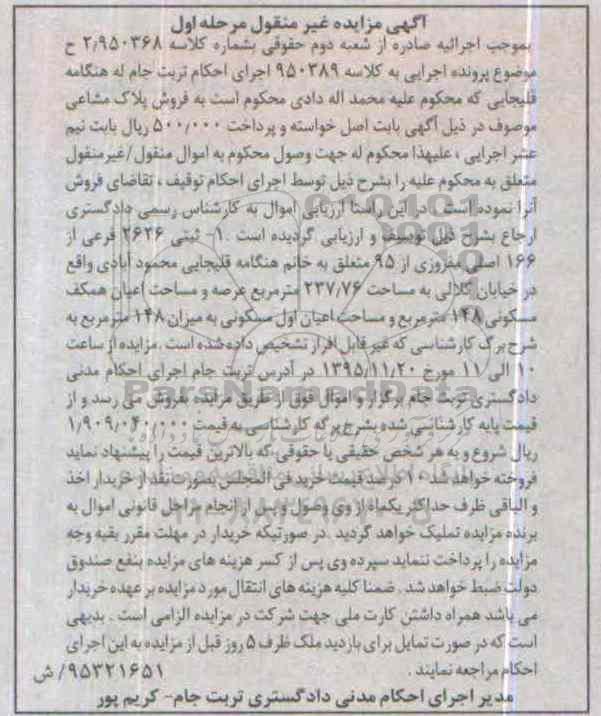 آگهی مزایده غیر منقول مرحله اول
بموجب اجرائیه صادره از شعبه دوم حقوقی بشماره کلاسه ۲/۹۵۰۳۶۸ ح
موضوع پرونده اجرایی به کلاسه ۹۵۰۳۸۹ اجرای احکام تربت جام له هنگامه
قلیجایی که محکوم علیه محمد اله دادی محکوم است به فروش پلاک مشاعی
موصوف در ذیل آگهی بابت اصل خواسته و پرداخت ۵۰۰/۰۰۰ ریال بابت نیم
عشر اجرایی ، علیهذا محکوم له جهت وصول محکوم به اموال منقول/غیرمنقول
متعلق به محکوم علیه را بشرح ذیل توسط اجرای احکام توقیف ، تقاضای فروش
آنرا نموده است . در این راستا ارزیابی اموال به کارشناس رسمی دادگستری
ارجاع بشرح ذیل توصیف و ارزیابی گردیده است .۱- ثبتی ۲۶۲۶ فرعی از
۱۶۶ اصلی مفروزی از ۹۵ متعلق به خانم هنگامه قلیجایی محمود آبادی واقع
در خیابان کلالی به مساحت ۲۳۷/۷۶ مترمربع عرصه و مساحت اعیان همکف
مسکونی ۱۴۸ مترمربع و مساحت اعیان اول مسکونی به میزان ۱۴۸ مترمربع به
شرح برگ کارشناسی که غیرقابل افراز تشخیص داده شده است .مزایده از ساعت
۱۰ الی ۱۱ مورخ ۱۳۹۵/۱۱/۲۰ در آدرس تربت جام اجرای احکام مدنی
دادگستری تربت جام برگزار و اموال فوق از طریق مزایده بفروش می رسد و از
قیمت پایه کارشناسی شده بشرح برگه کارشناسی به قیمت ۱/۹۰۹/۰۴۰/۰۰۰
ریال شروع و به هر شخص حقیقی یا حقوقی که بالاترین قیمت را پیشنهاد نماید
فروخته خواهد شد ۱۰ درصد قیمت خرید فی المجلس بصورت نقد از خریدار اخذ
و الباقی ظرف حداکثر یکماه از وی وصول و پس از انجام مراحل قانونی اموال به
برنده مزایده تملیک خواهد گردید .در صورتیکه خریدار در مهلت مقرر بقیه وجه
مزایده را پرداخت ننماید سپرده وی پس از کسر هزینه های مزایده بنفع صندوق
دولت ضبط خواهد شد . ضمنا کلیه هزینه های انتقال مورد مزایده بر عهده خریدار
می باشد همراه داشتن کارت ملی جهت شرکت در مزایده الزامی است . بدیهی
است که در صورت تمایل برای بازدید ملک ظرف ۵ روز قبل از مزایده به این اجرای
احکام مراجعه نمایند . ۹۵۳۲۱۶۵۱/ ش
مدیر اجرای احکام مدنی دادگستری تربت جام- کریم پور
ParsNamadData